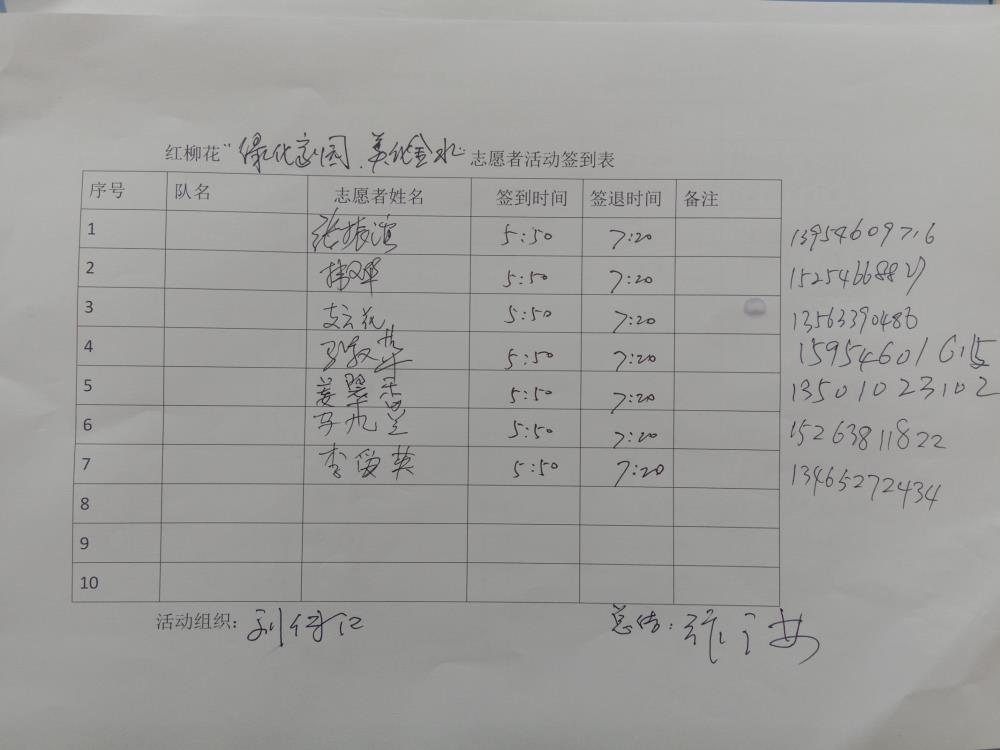 红柳花“绿化家园、美化金水 志愿者活动签到表
序号 队名 志愿者姓名 签到时间 签退时间 备注
1 张振滨 5:50 7:20 13954609716
2 5:50 7:20 152546688
3 支云花 5:50 7:20 13563390486
4 5:50 7:20 15954601
5 姜翠香 5:50 7:20 13501023102
6 马九兰 5:50 7:20 15263811822
7 李爱英 5:50 7:20 13465272434
8
9
10
活动组织： 总结：